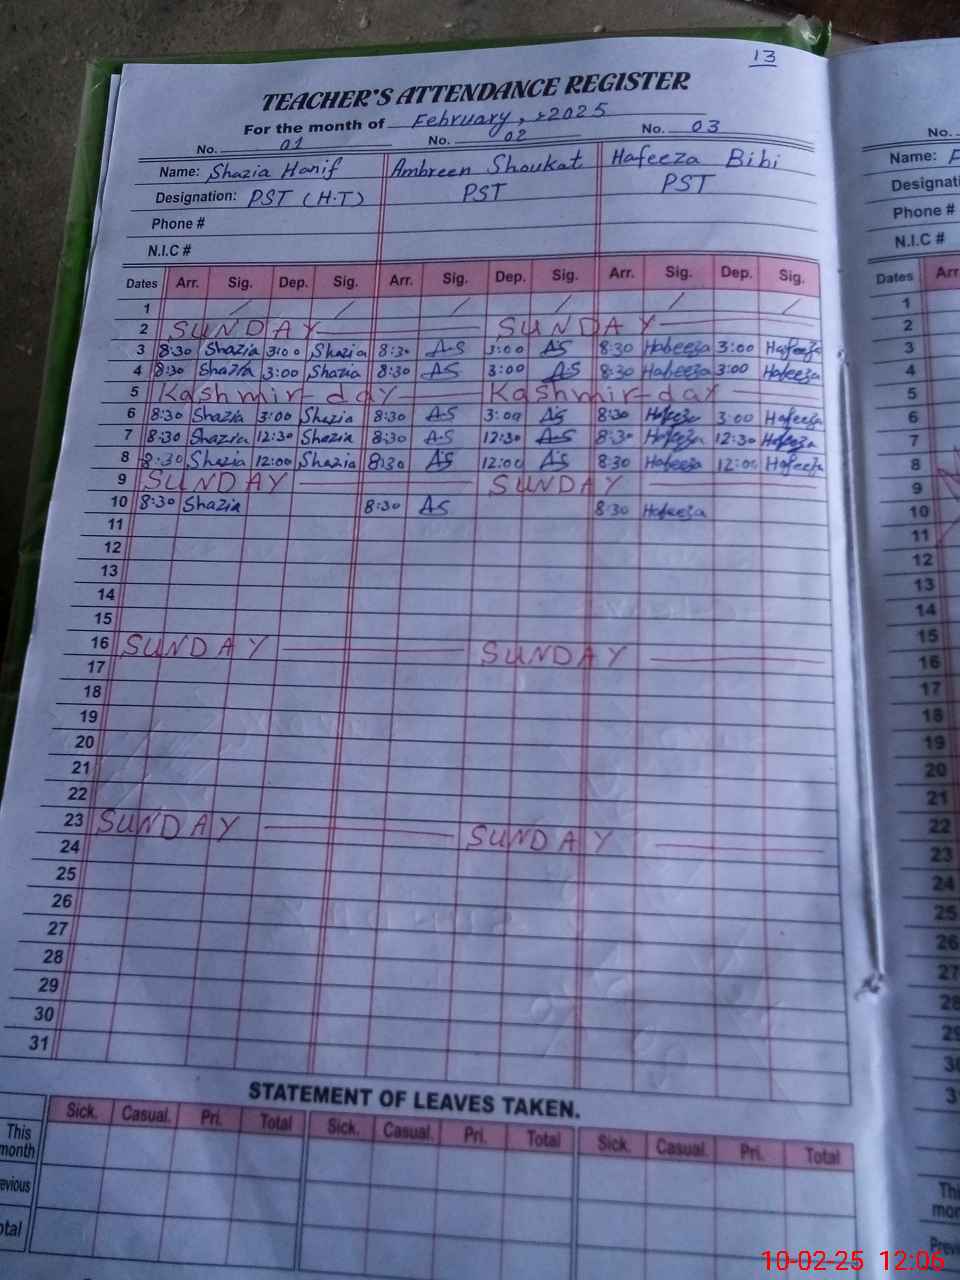 13
TEACHER'S ATTENDANCE REGISTER
For the month of February, 2025
No. 01 No. 02 No. 03
Name: Shazia Hanif Ambreen Shoukat Hafeeza Bibi
Designation: PST (H.T) PST PST
Phone #
N.I.C #
Dates Arr. Sig. Dep. Sig. Arr. Sig. Dep. Sig. Arr. Sig. Dep. Sig.
1
2 SUNDAY SUNDAY
3 8:30 Shazia 3:00 Shazia 8:30 A-S 3:00 AS 8:30 Hafeeza 3:00 Hafeeza
4 8:30 Shazia 3:00 Shazia 8:30 AS 3:00 AS 8:30 Hafeeza 3:00 Hafeeza
5 Kashmir-day Kashmir-day
6 8:30 Shazia 3:00 Shazia 8:30 A-S 3:00 AS 8:30 Hafeeza 3:00 Hafeeza
7 8:30 Shazia 12:30 Shazia 8:30 A-S 12:30 A-S 8:30 Hafeeza 12:30 Hafeeza
8 8:30 Shazia 12:00 Shazia 8:30 AS 12:00 AS 8:30 Hafeeza 12:00 Hafeeza
9 SUNDAY SUNDAY
10 8:30 Shazia 8:30 AS 8:30 Hafeeza
11
12
13
14
15
16 SUNDAY SUNDAY
17
18
19
20
21
22
23 SUNDAY SUNDAY
24
25
26
27
28
29
30
31
STATEMENT OF LEAVES TAKEN.
Sick. Casual. Pri. Total Sick. Casual. Pri. Total Sick. Casual. Pri. Total
This month
evious
otal
No.
Name:
Designati
Phone #
N.I.C #
Dates Arr
1
2
3
4
5
6
7
8
9
10
11
12
13
14
15
16
17
18
19
20
21
22
23
24
25
26
27
28
29
30
3
Thi
mon
Prev
10-02-25 12:06